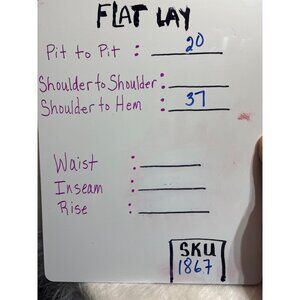 FLAT LAY
Pit to Pit : 20
Shoulder to Shoulder:
Shoulder to Hem : 37
Waist :
Inseam :
Rise :
SKU
1867